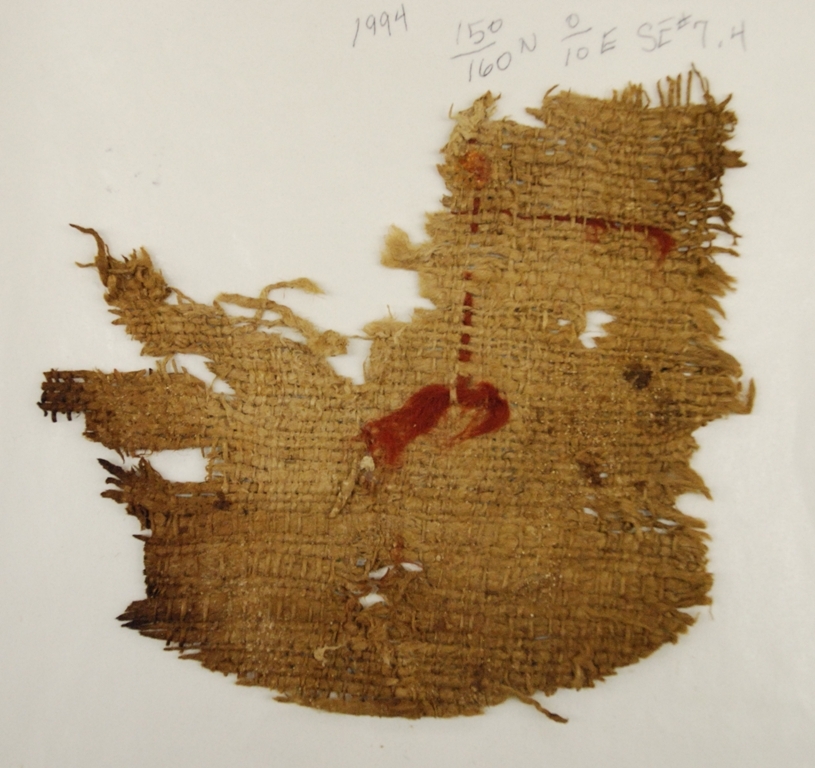 1994 150/160 N 0/10 E SE#7.4